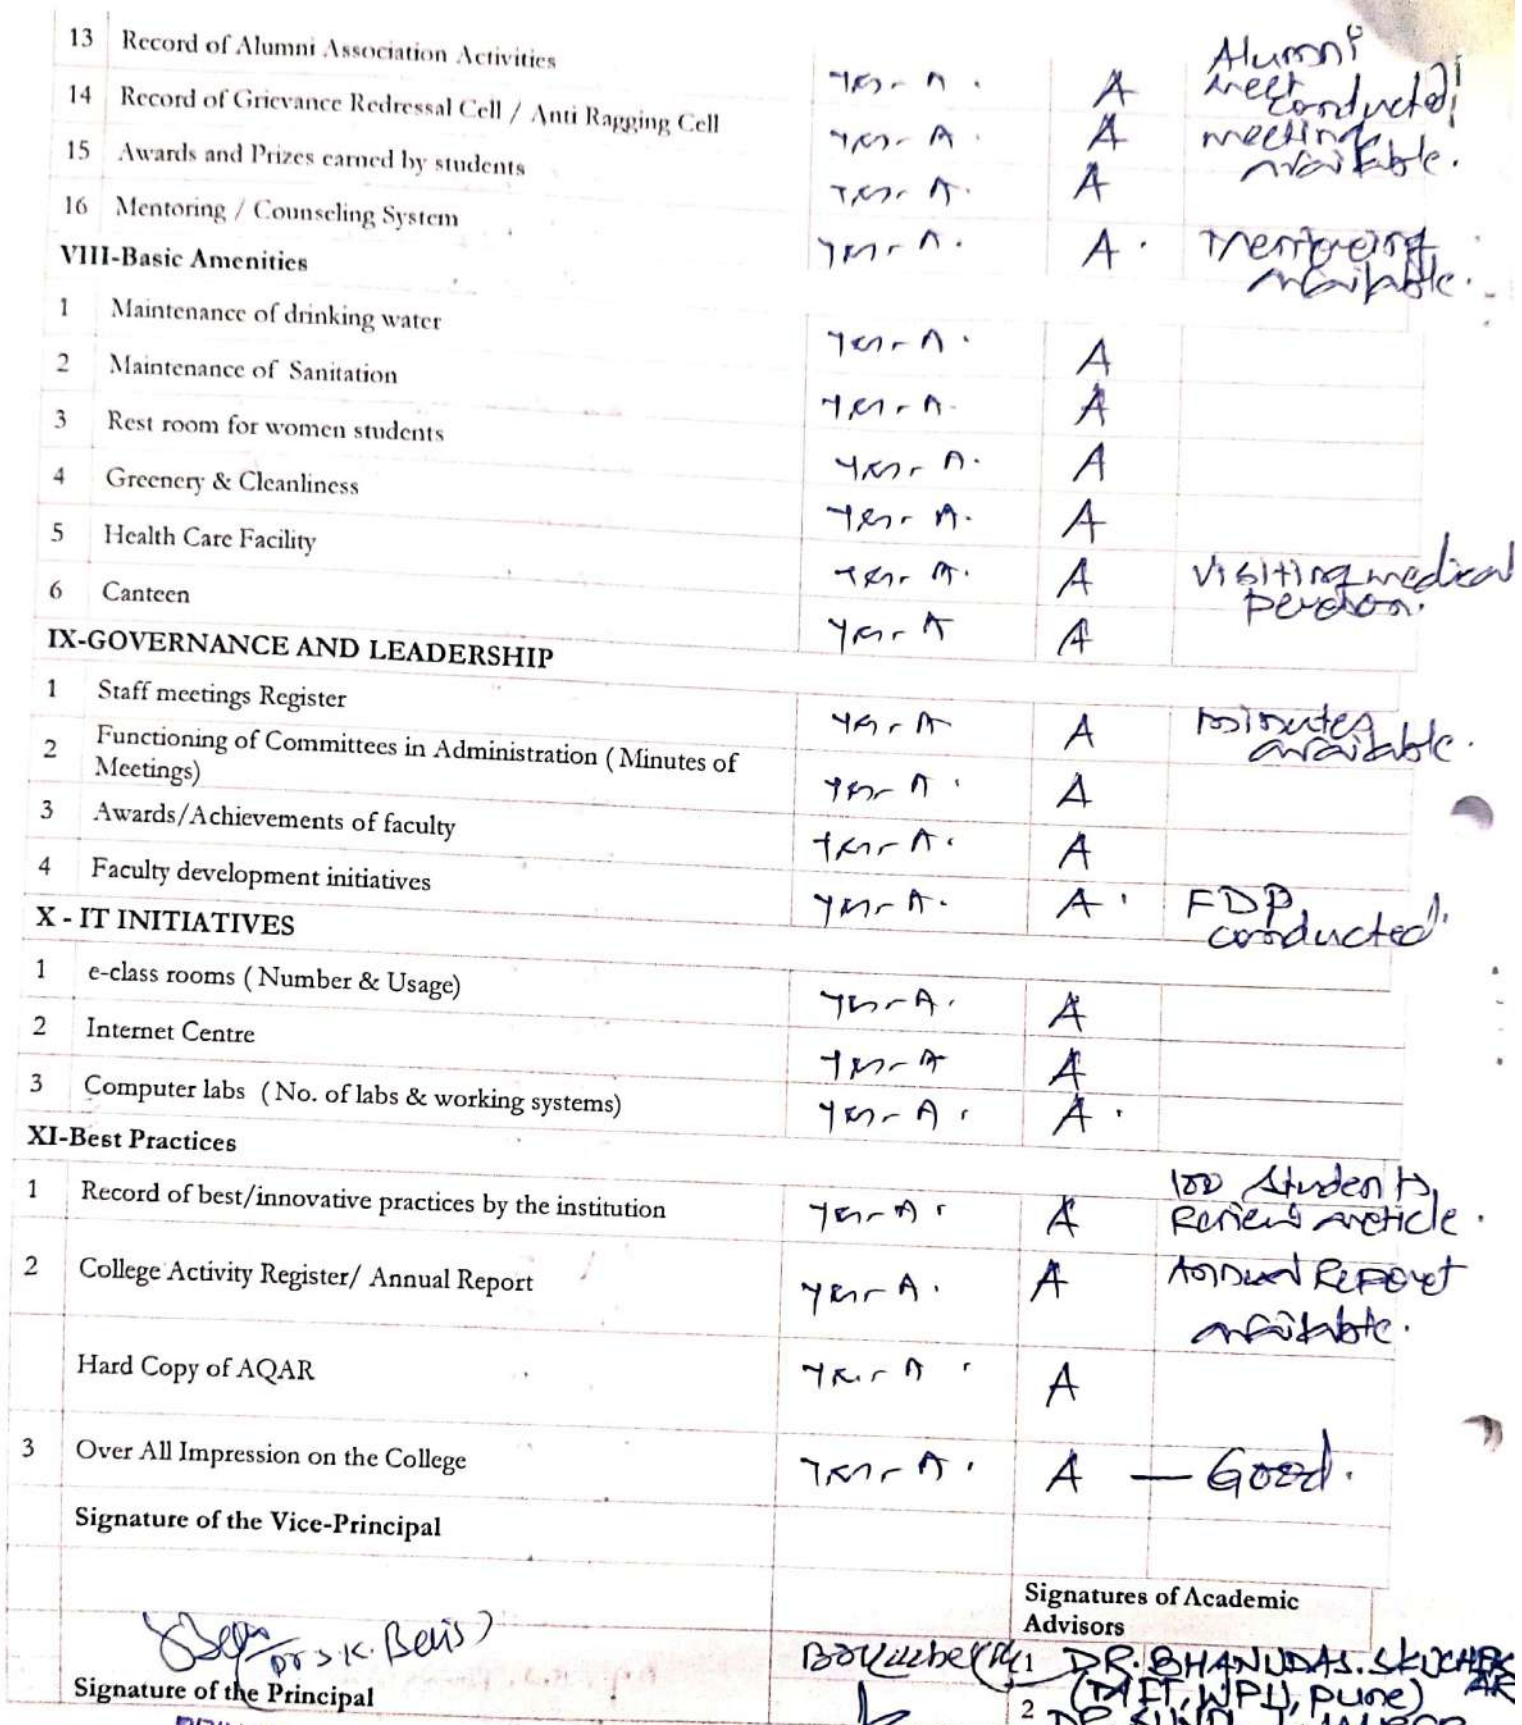 13 Record of Alumni Association Activities Yes - A. A Alumni meet conducted
14 Record of Grievance Redressal Cell / Anti Ragging Cell Yes - A. A meeting available.
15 Awards and Prizes earned by students Yes - A. A
16 Mentoring / Counseling System Yes - A. A. Mentoring available.
VIII-Basic Amenities
1 Maintenance of drinking water Yes - A. A
2 Maintenance of Sanitation Yes - A. A
3 Rest room for women students Yes - A. A
4 Greenery & Cleanliness Yes - A. A
5 Health Care Facility Yes - A. A Visiting medical person.
6 Canteen Yes - A A
IX-GOVERNANCE AND LEADERSHIP
1 Staff meetings Register Yes - A A minutes available.
2 Functioning of Committees in Administration (Minutes of
Meetings) Yes - A. A
3 Awards/Achievements of faculty Yes - A. A
4 Faculty development initiatives Yes - A. A. FDP conducted
X - IT INITIATIVES
1 e-class rooms (Number & Usage) Yes - A. A
2 Internet Centre Yes - A A
3 Computer labs (No. of labs & working systems) Yes - A. A.
XI-Best Practices
1 Record of best/innovative practices by the institution Yes - A. A 100 Students Review article.
2 College Activity Register/ Annual Report Yes - A. A Annual Report available.
Hard Copy of AQAR Yes - A. A
3 Over All Impression on the College Yes - A. A — Good.
Signature of the Vice-Principal
Signatures of Academic
Advisors
Dr S.K. 1 DR. BHANUDAS.
Signature of the Principal (MIT, WPU, Pune)
2 DR.